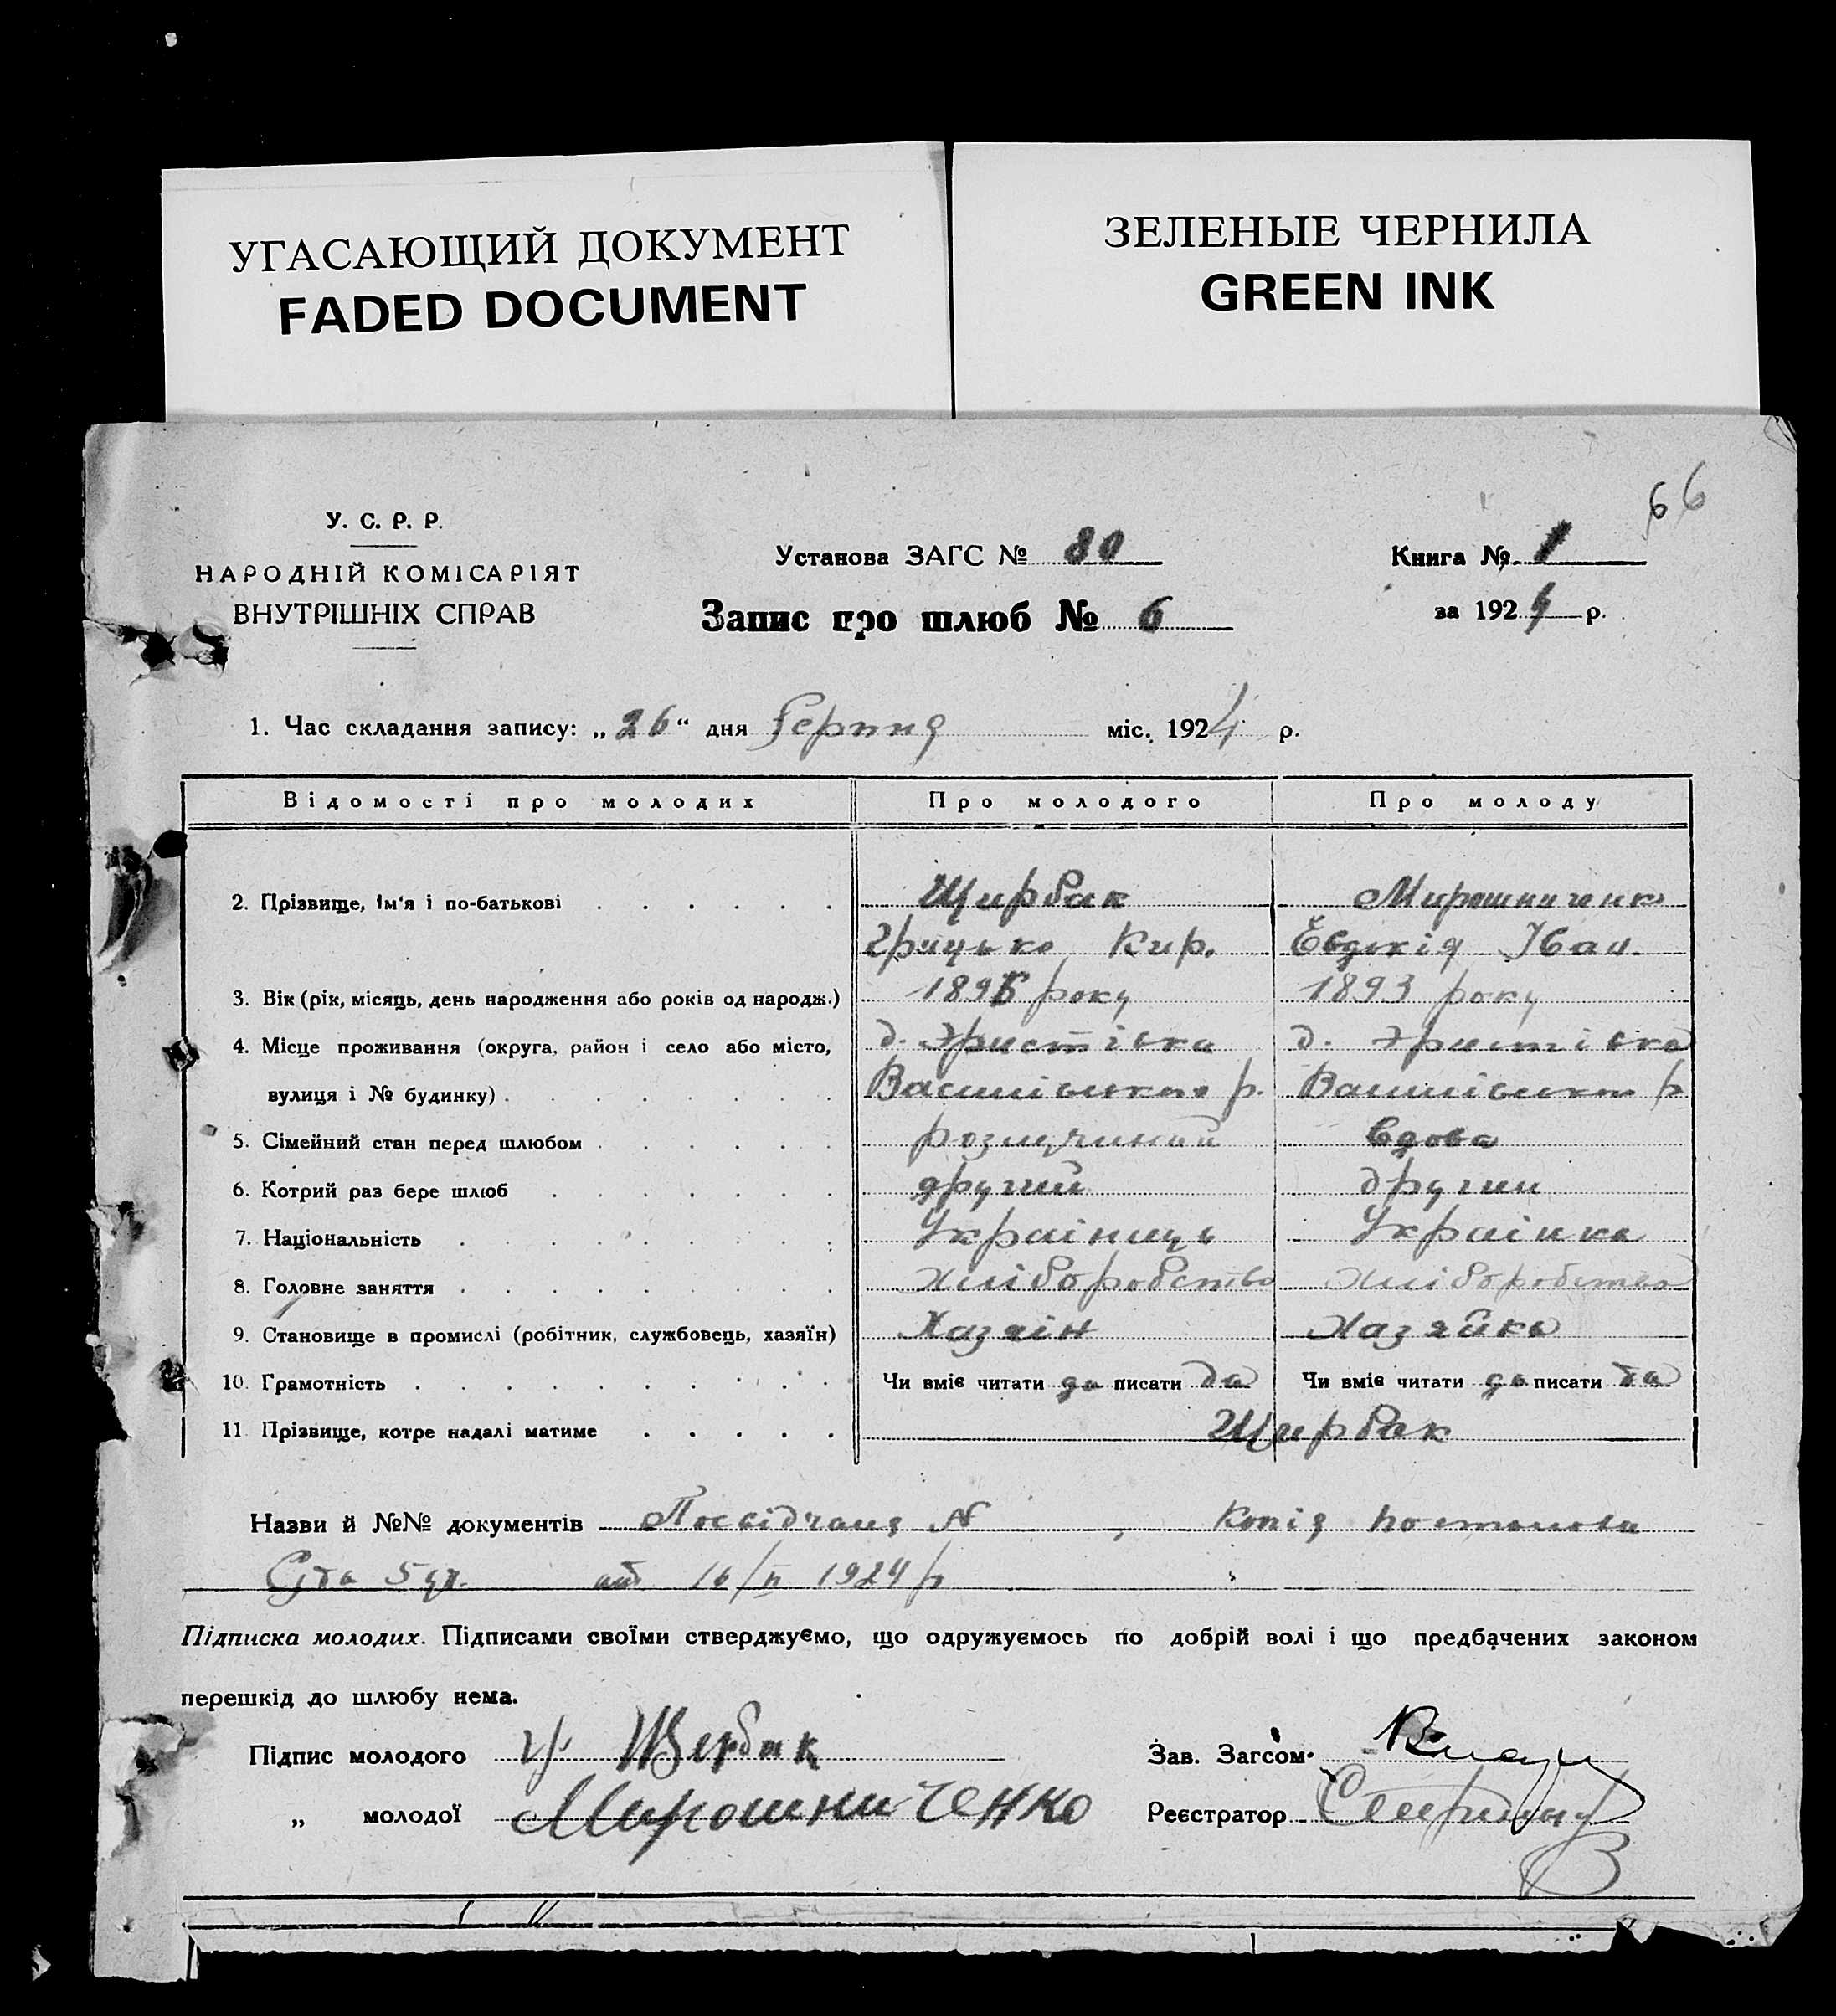 УГАСАЮЩИЙ ДОКУМЕНТ
FADED DOCUMENT
ЗЕЛЕНЫЕ ЧЕРНИЛА
GREEN INK
66
У. С. Р. Р.
НАРОДНІЙ КОМІСАРІЯТ
ВНУТРІШНІХ СПРАВ
Установа ЗАГС № 80
Запис про шлюб № 6
Книга № 1
за 1924 р.
1. Час складання запису: „26“ дня Серпня міс. 1924 р.
Відомості про молодих Про молодого Про молоду
2. Прізвище, ім'я і по-батькові Щирбак Мирошниченко
Грицько Кир. Євдокія Іван.
3. Вік (рік, місяць, день народження або років од народж.) 1896 року 1893 року
4. Місце проживання (округа, район і село або місто, д. Христівка д. Христівка
вулиця і № будинку) р. р.
5. Сімейний стан перед шлюбом розлучиний вдова
6. Котрий раз бере шлюб другий другий
7. Національність Українець Українка
8. Головне заняття Хліборобство Хліборобство
9. Становище в промислі (робітник, службовець, хазяїн) Хазяін Хазяйка
10. Грамотність Чи вміє читати да писати да Чи вміє читати да писати да
11 Прізвище, котре надалі матиме Щирбак
Назви й №№ документів Посвідчання №, Копія постанови
Суда 5 від 16/II 1924 р
Підписка молодих. Підписами своїми стверджуємо, що одружуємось по добрій волі і що предбачених законом
перешкід до шлюбу нема.
Підпис молодого Гр. Щербак
„ молодої Мирошниченко
Зав. Загсом
Реєстратор